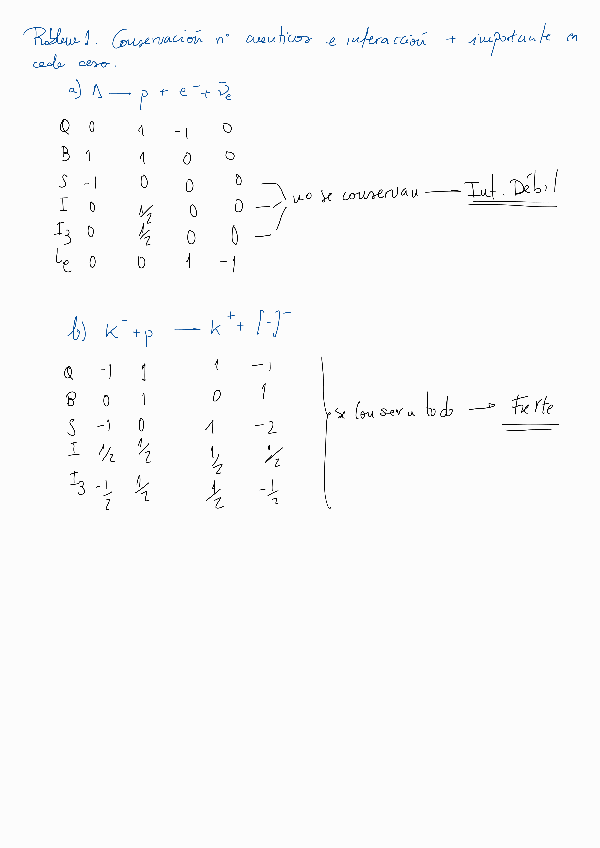 Problema 1. Conservación nº cuánticos e interacción + importante en
cada caso.
a) Λ → p + e⁻ + ν̄e
Q 0 1 -1 0
B 1 1 0 0
S -1 0 0 0
I 0 1/2 0 0
I3 0 1/2 0 0
no se conservan — Int. Débil
Le 0 0 1 -1
b) K⁻ + p → K⁺ + Ξ⁻
Q -1 1 1 -1
B 0 1 0 1
S -1 0 1 -2
I 1/2 1/2 1/2 1/2
I3 -1/2 1/2 1/2 -1/2
se conserva todo → Fuerte